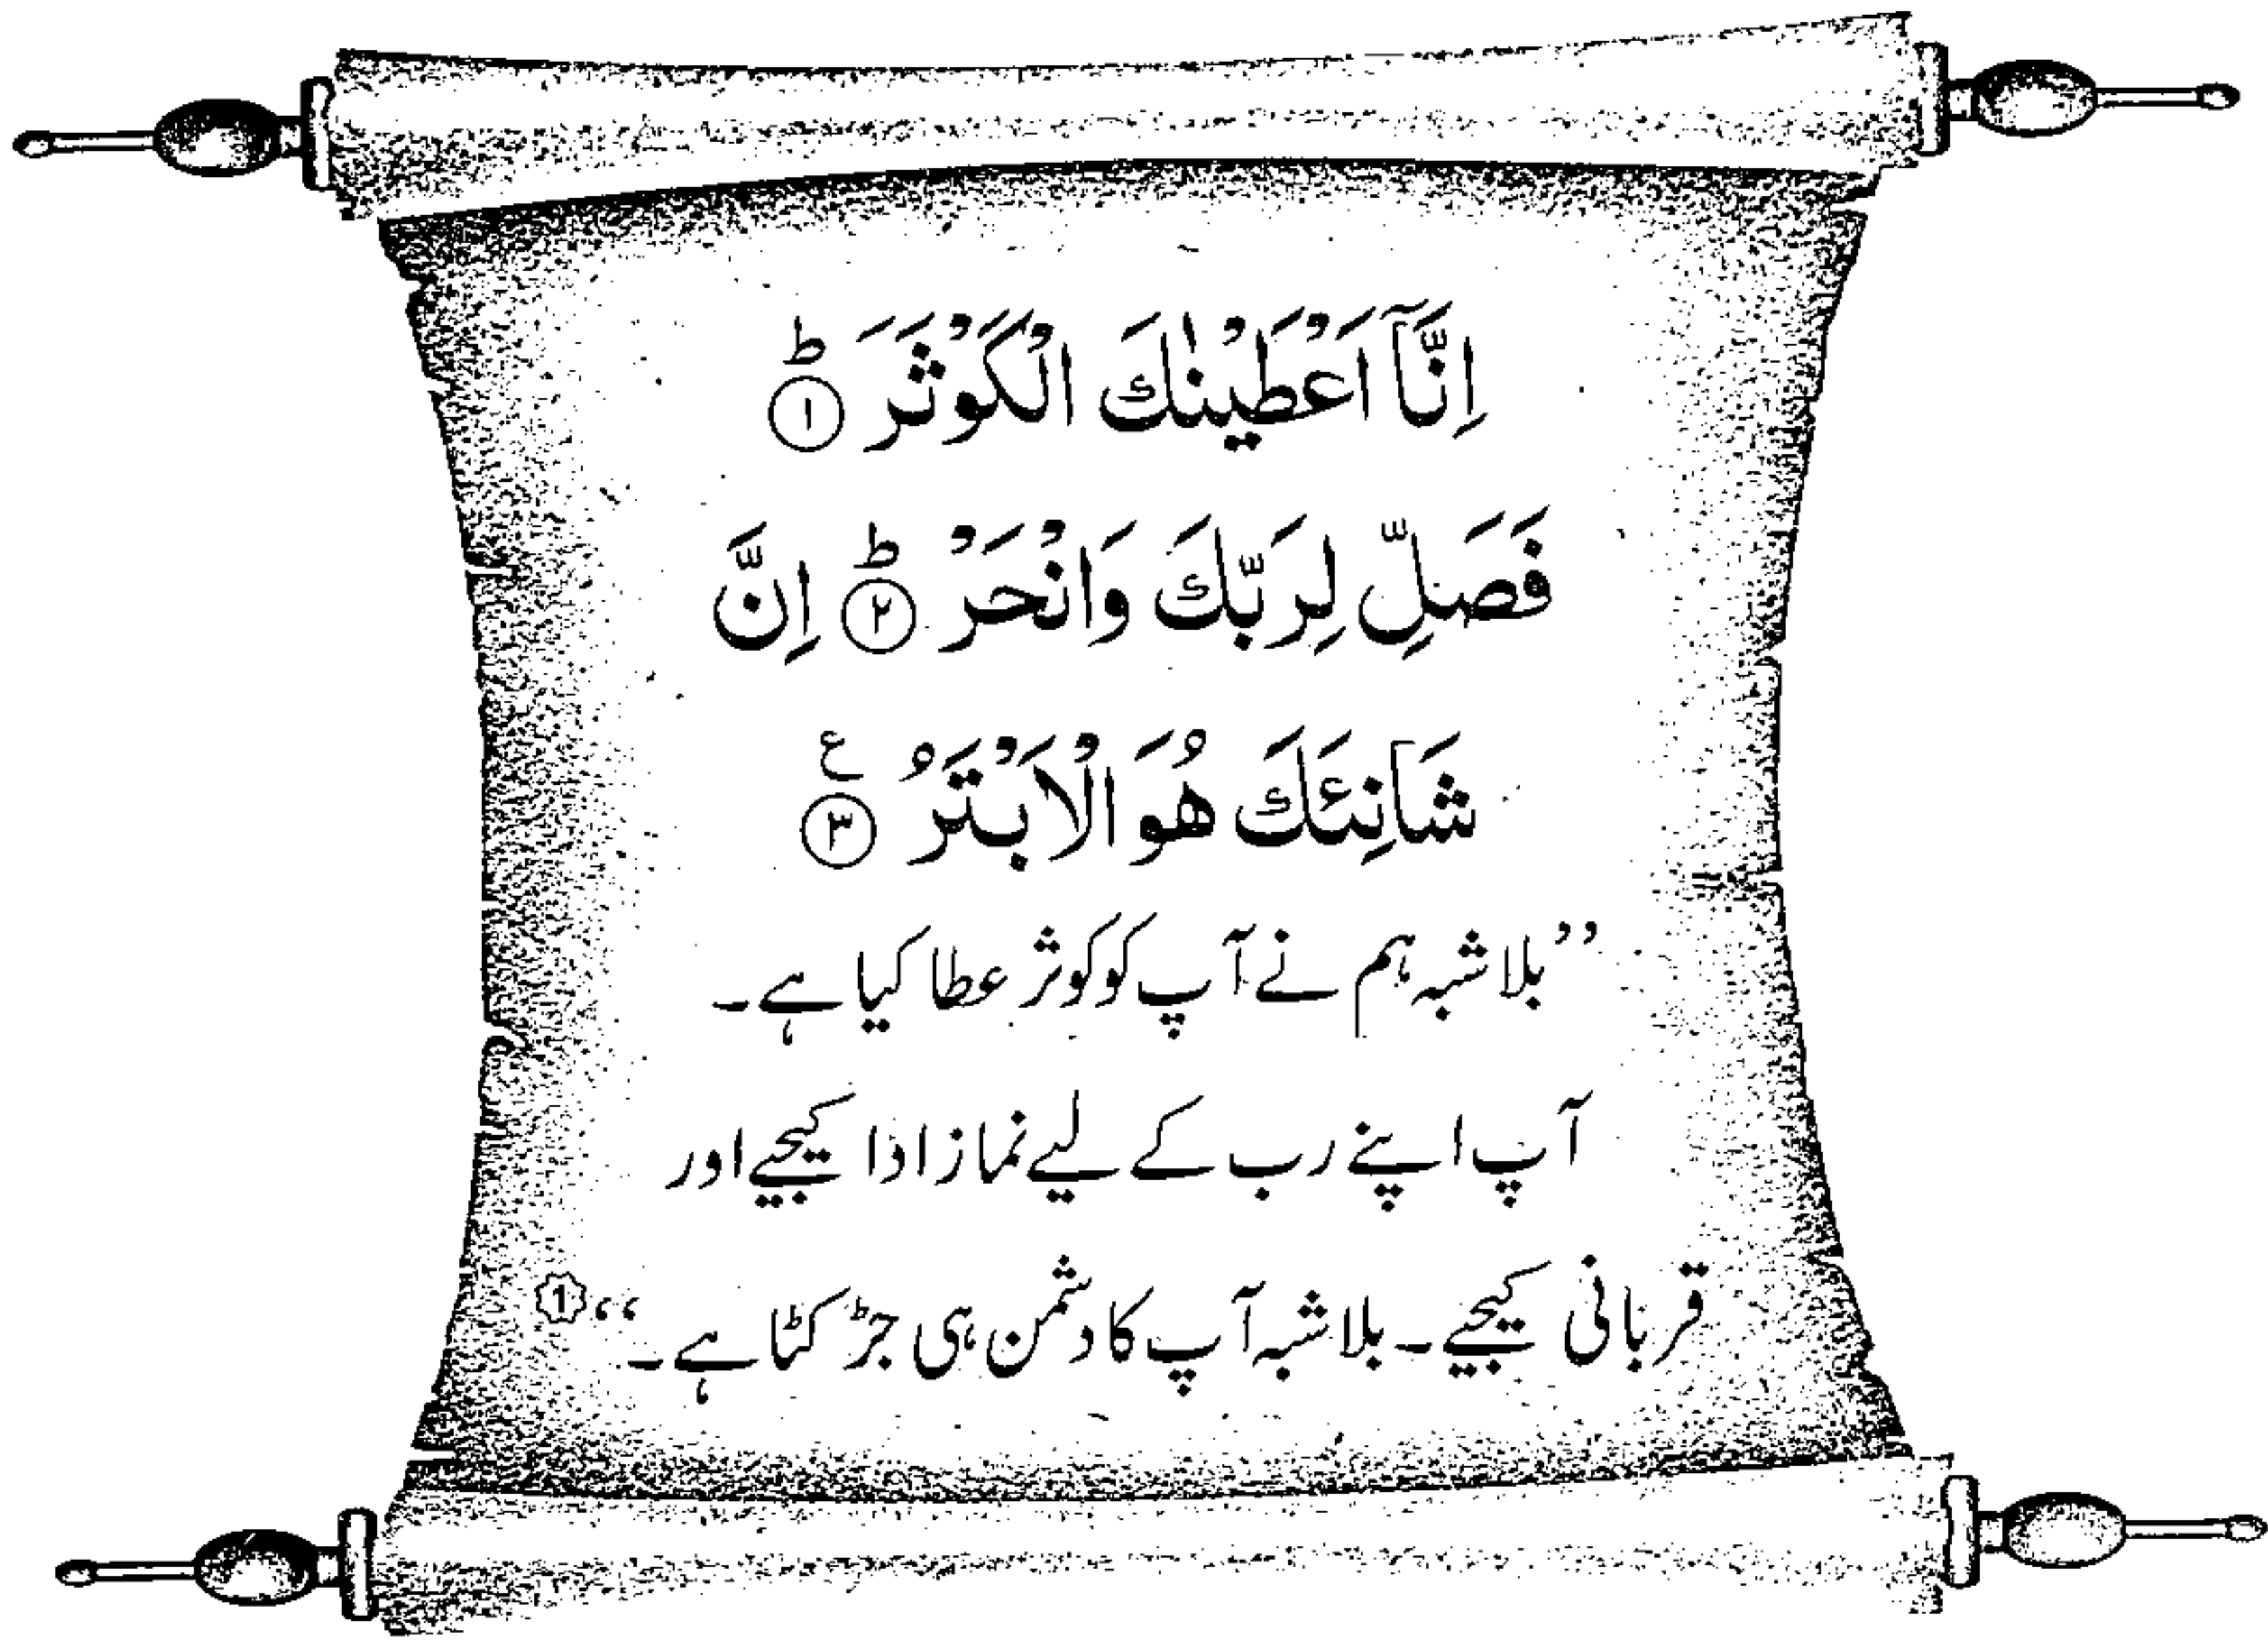 اِنَّآ اَعْطَيْنٰكَ الْكَوْثَرَ ؕ ①
فَصَلِّ لِرَبِّكَ وَانْحَرْ ؕ ② اِنَّ
شَانِئَكَ هُوَ الْاَبْتَرُ ③ ع
’’بلاشبہ ہم نے آپ کو کوثر عطا کیا ہے۔
آپ اپنے رب کے لیے نماز ادا کیجیے اور
قربانی کیجیے۔ بلاشبہ آپ کا دشمن ہی جڑ کٹا ہے۔‘‘ ①